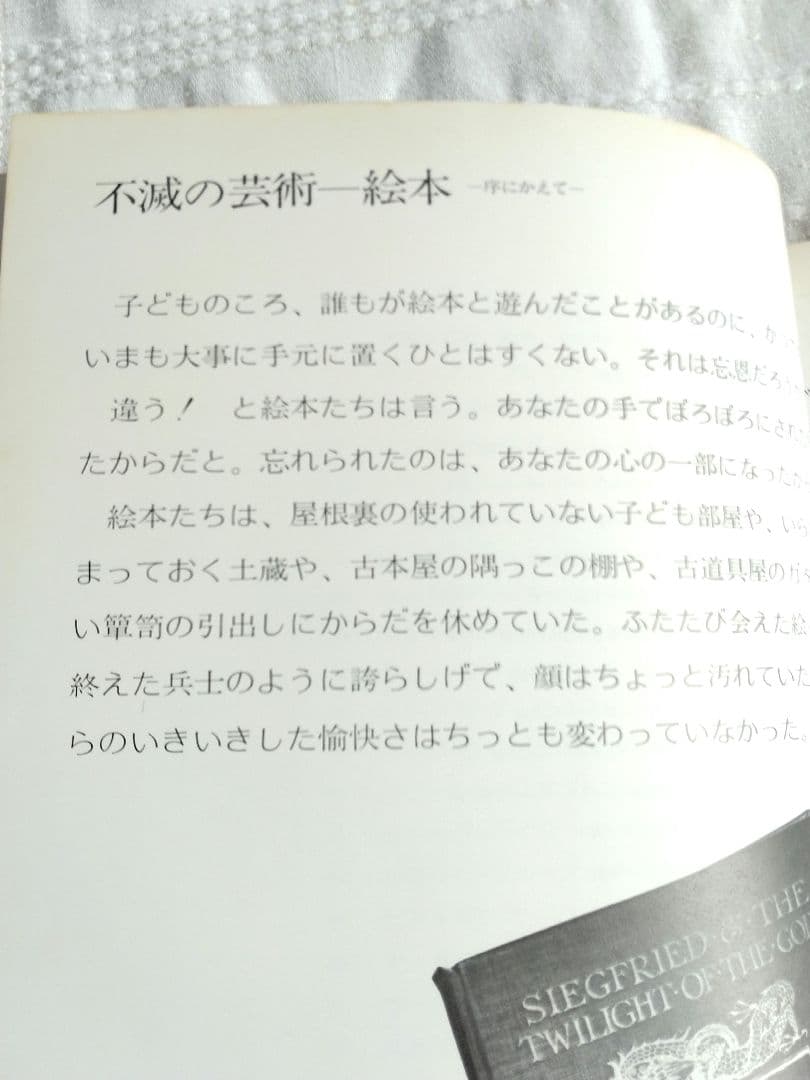 不滅の芸術—絵本 —序にかえて—
子どものころ、誰もが絵本と遊んだことがあるのに、か
いまも大事に手元に置くひとはすくない。それは忘恩だろう
違う！ と絵本たちは言う。あなたの手でぼろぼろにされ
たからだと。忘れられたのは、あなたの心の一部になったか
絵本たちは、屋根裏の使われていない子ども部屋や、いら
まっておく土蔵や、古本屋の隅っこの棚や、古道具屋のガ
い簞笥の引出しにからだを休めていた。ふたたび会えた絵
終えた兵士のように誇らしげで、顔はちょっと汚れていた
らのいきいきした愉快さはちっとも変わっていなかった。
SIEGFRIED & THE
TWILIGHT·OF·THE·GO